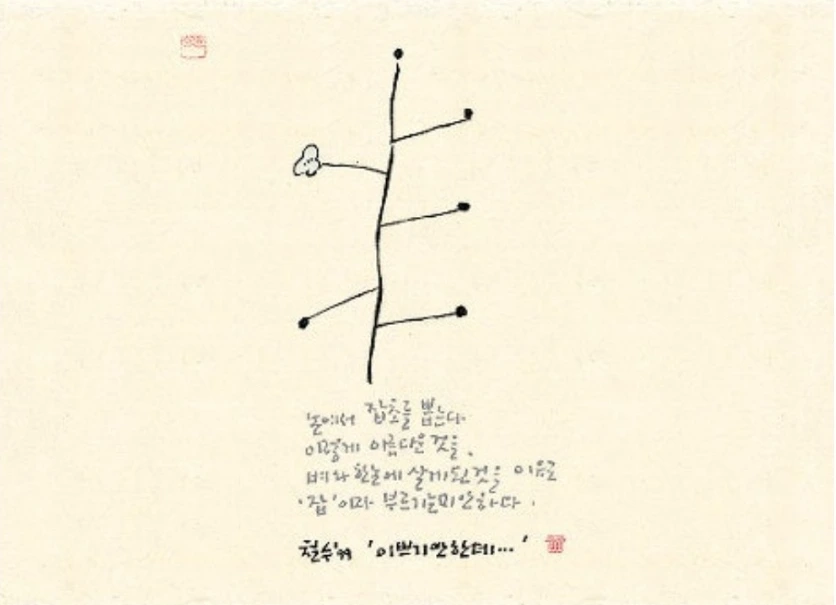 논에서 잡초를 뽑는다
이렇게 아름다운 것을.
벼와 한논에 살게된것을 이유로
'잡'이라 부르기 미안하다.
철수'99 '이쁘기만한데...'